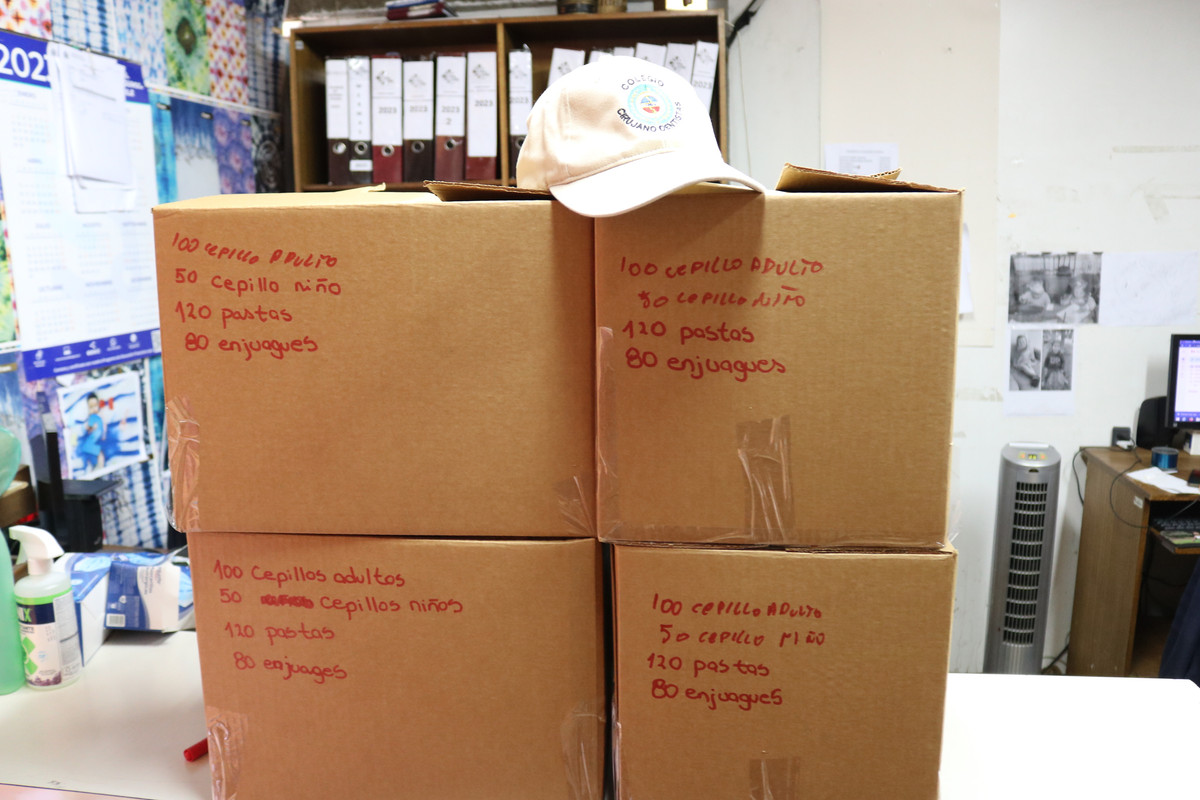 202
COLEGIO
CIRUJANO DENTISTAS
2023
2023
2023
2
2023
2023
2023
100 CEPILLO ADULTO
50 cepillo niño
120 pastas
80 enjuagues
100 CEPILLO ADULTO
50 CEPILLO NIÑO
120 pastas
80 enjuagues
100 Cepillos adultos
50 Cepillos niños
120 pastas
80 enjuages
100 CEPILLO ADULTO
50 CEPILLO NIÑO
120 pastas
80 enjuagues